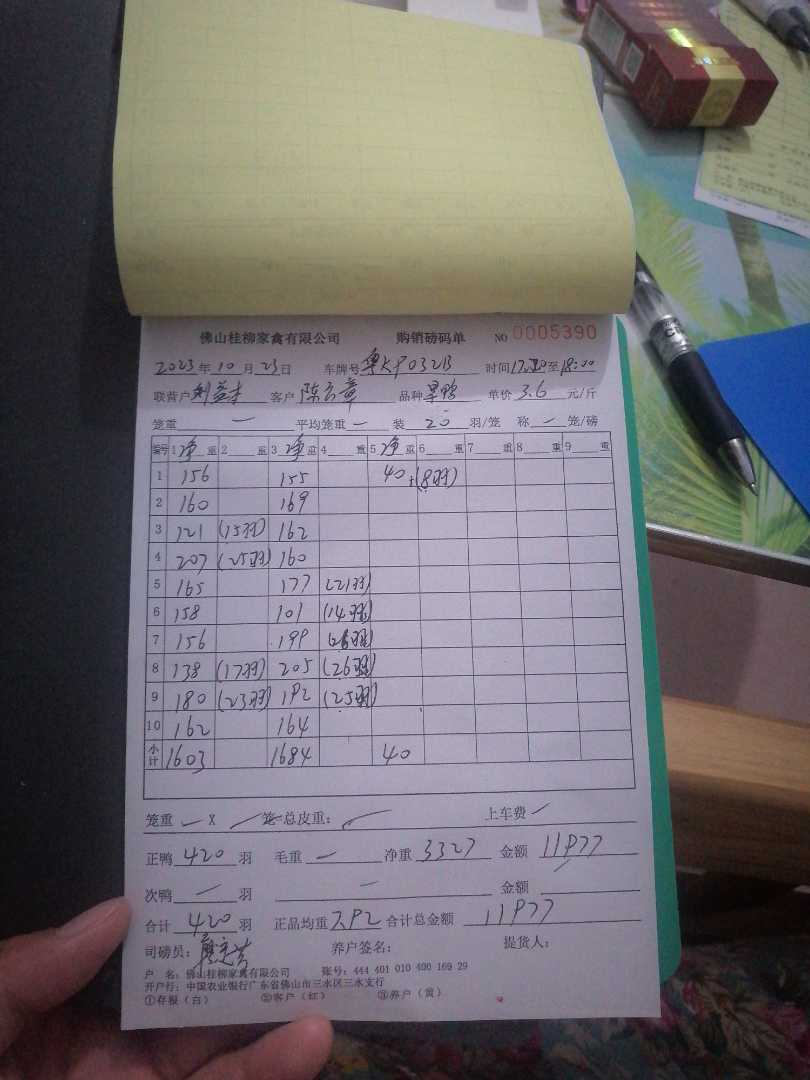 佛山桂柳家禽有限公司 购销磅码单 NO 0005390
2023年10月23日 车牌号粤KP032B 时间 至18:00
联营户 客户陈云章 品种果鸭 单价3.6元/斤
笼重 — 平均笼重 — 装20羽/笼 称 — 笼/磅
编号 1净重 2 重 3净重 4 重 5净重 6 重 7 重 8 重 9 重
1 156 155 40 (8羽)
2 160 169
3 121 (15羽) 162
4 207 (25羽) 160
5 165 177 (21羽)
6 158 101 (14羽)
7 156 199 (26羽)
8 138 (17羽) 205 (26羽)
9 180 (23羽) 192 (25羽)
10 162 164
小计 1603 1684 40
笼重 — X 笼 总皮重: 上车费
正鸭 420 羽 毛重 — 净重 3327 金额 11977
次鸭 — 羽 — 金额
合计 420 羽 正品均重 7.92 合计总金额 11977
司磅员: 养户签名: 提货人:
户 名:佛山桂柳家禽有限公司 账号:444 401 010 400 169 29
开户行:中国农业银行广东省佛山市三水区三水支行
①存根(白) ②客户(红) ③养户(黄)